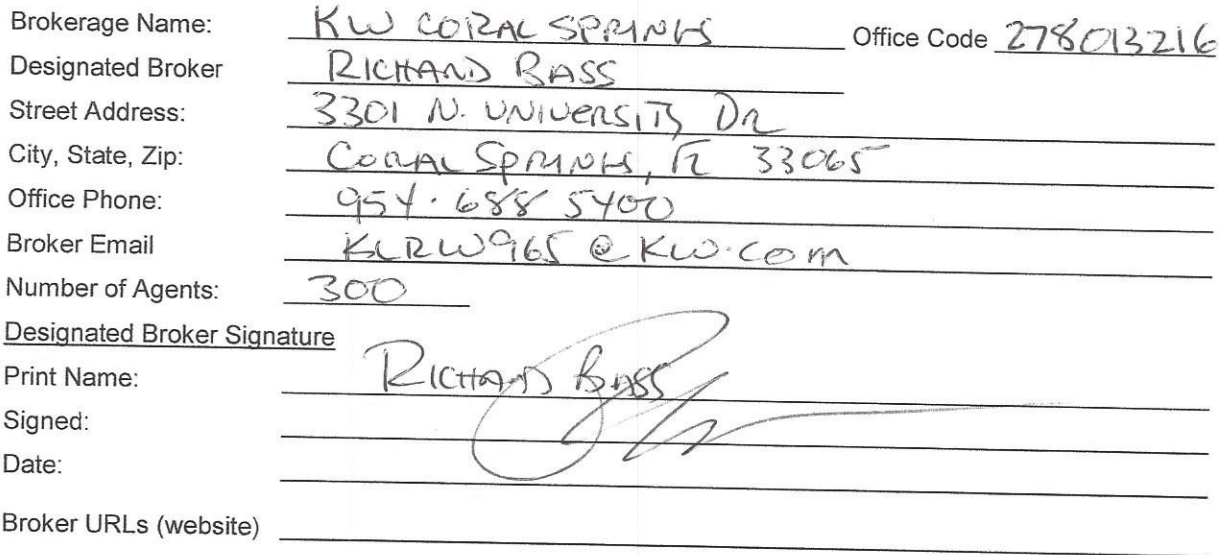 Brokerage Name: KW CORAL SPRINGS Office Code 278013216
Designated Broker RICHARD BASS
Street Address: 3301 N. UNIVERSITY DR
City, State, Zip: CORAL SPRINGS, FL 33065
Office Phone: 954.688 5400
Broker Email KLRW965@KW.COM
Number of Agents: 300
Designated Broker Signature
Print Name: RICHARD BASS
Signed:
Date:
Broker URLs (website)